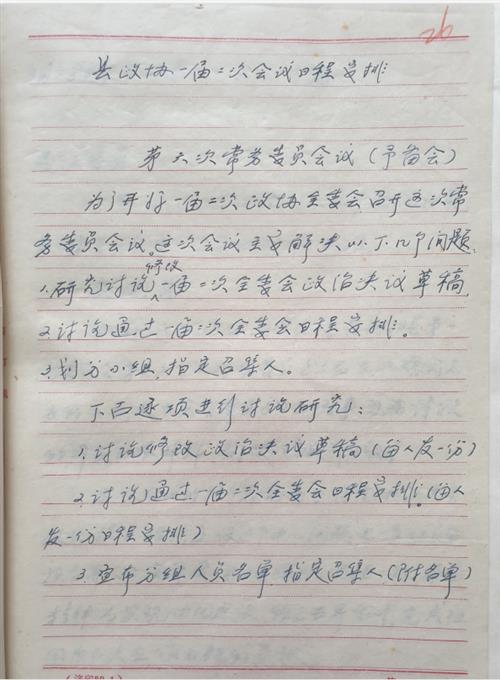 26
县政协一届二次会议日程安排
第六次常务委员会议（予备会）
为了开好一届二次政协全委会召开这次常
务委员会议。这次会议主要解决以下几个问题：
修改
1.研究讨论一届二次全委会政治决议草稿，
2.讨论通过一届二次全委会日程安排。
3.划分小组，指定召集人。
下面逐项进行讨论研究：
1.讨论修改政治决议草稿（每人发一份）
2.讨论通过一届二次全委会日程安排。（每人
发一份日程安排）
3.宣布分组人员名单，指定召集人（附名单）